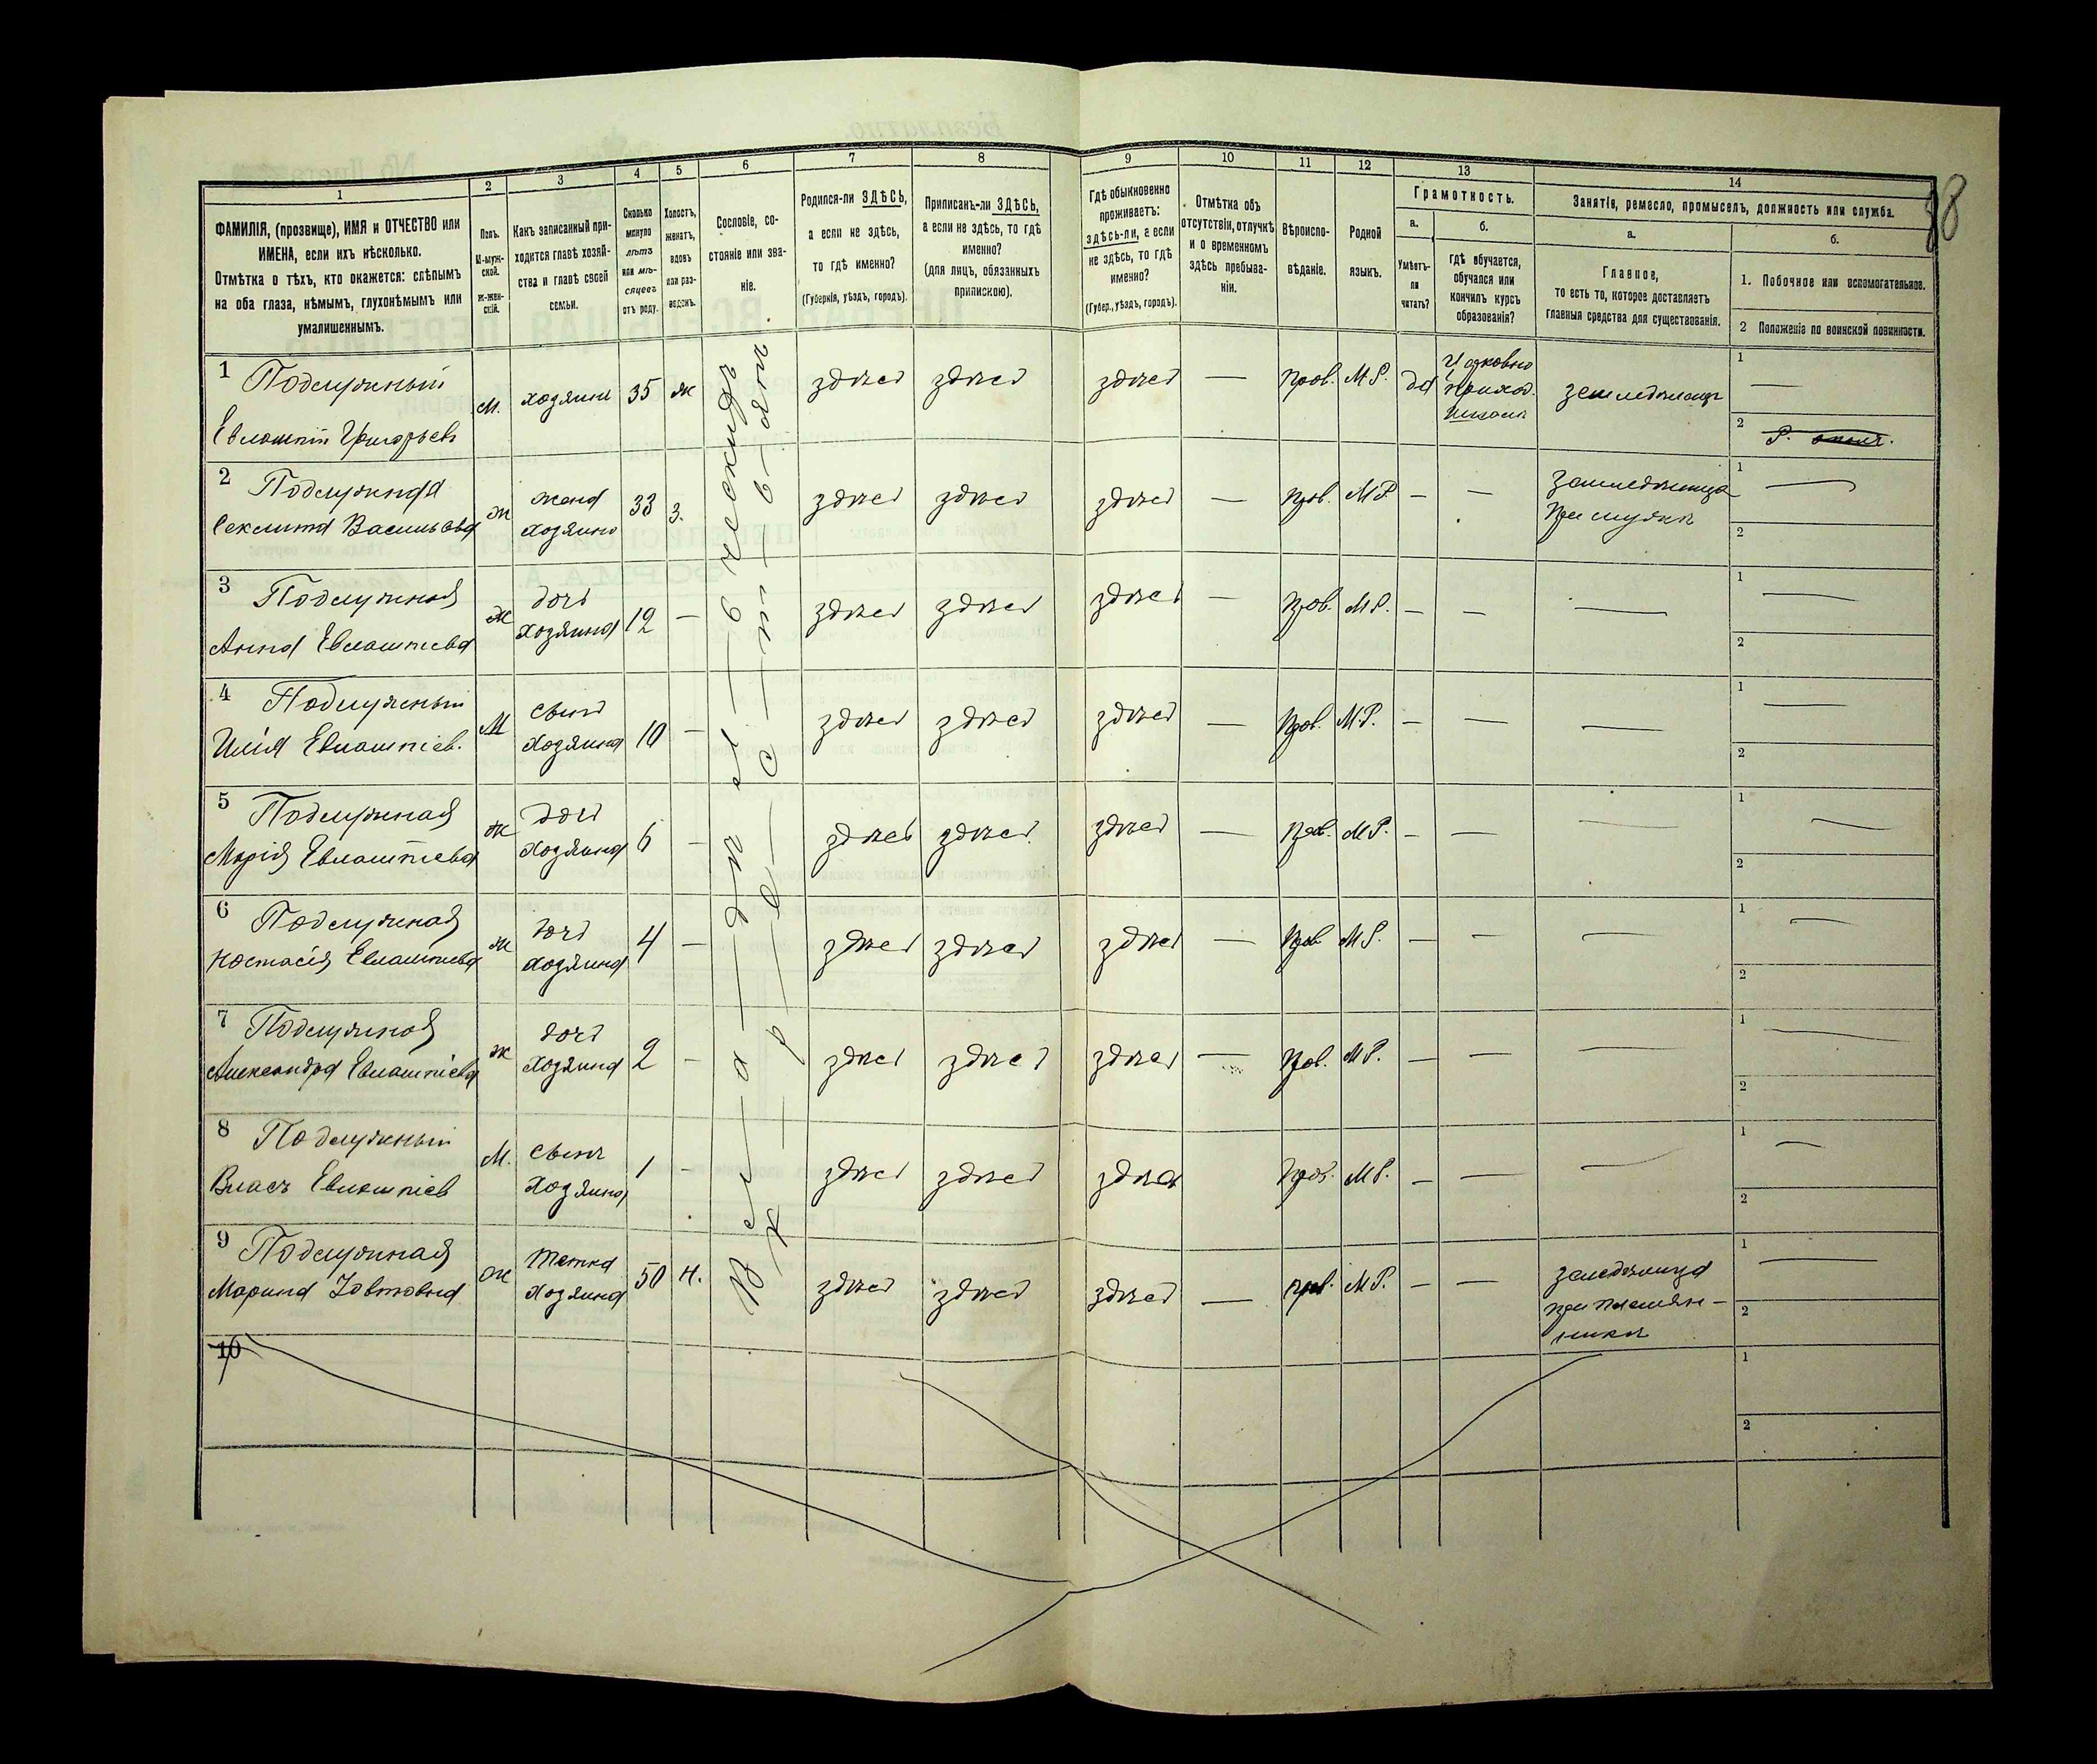 1 2 3 4 5 6 7 8 9 10 11 12 13 14
ФАМИЛІЯ, (прозвище), ИМЯ и ОТЧЕСТВО или
ИМЕНА, если ихъ нѣсколько.
Отмѣтка о тѣхъ, кто окажется: слѣпымъ
на оба глаза, нѣмымъ, глухонѣмымъ или
умалишеннымъ.
Полъ.
М-муж-
ской.
Ж-жен-
скій.
Какъ записанный при-
ходится главѣ хозяй-
ства и главѣ своей
семьи.
Сколько
минуло
лѣтъ
или мѣ-
сяцевъ
отъ роду.
Холостъ,
женатъ,
вдовъ
или раз-
веденъ.
Сословіе, со-
стояніе или зва-
ніе.
Родился-ли ЗДѢСЬ,
а если не здѣсь,
то гдѣ именно?
(Губернія, уѣздъ, городъ).
Приписанъ-ли ЗДѢСЬ,
а если не здѣсь, то гдѣ
именно?
(для лицъ, обязанныхъ
припискою).
Гдѣ обыкновенно
проживаетъ:
здѣсь-ли, а если
не здѣсь, то гдѣ
именно?
(Губер., уѣздъ, городъ).
Отмѣтка объ
отсутствіи, отлучкѣ
и о временномъ
здѣсь пребыва-
ніи.
Вѣроиспо-
вѣданіе.
Родной
языкъ.
Грамотность.
а.
Умѣетъ-
ли
читать?
б.
гдѣ обучается,
обучался или
кончилъ курсъ
образованія?
Занятіе, ремесло, промыселъ, должность или служба.
а.
Главное,
то есть то, которое доставляетъ
главныя средства для существованія.
б.
1. Побочное или вспомогательное.
2 Положеніе по воинской повинности.
1 Подлужный
Евлампій Григорьевъ
м. хозяинъ 35 ж здѣсь здѣсь здѣсь — прав. М.Р. да
Церковно
приход.
школа
земледѣлецъ
1 —
2 Р.
2 Подлужная
Секлита Васильева
ж жена
хозяина
33 з. здѣсь здѣсь здѣсь — прав. М.Р. — —
земледѣлица
при мужѣ
1 —
2
3 Подлужная
Анна Евлампіева
ж дочь
хозяина
12 — здѣсь здѣсь здѣсь — прав. М.Р. — — —
1 —
2
4 Подлужный
Илія Евлампіев.
М сынъ
хозяина
10 — здѣсь здѣсь здѣсь — прав. М.Р. — — —
1 —
2
5 Подлужная
Марія Евлампіева
ж дочь
хозяина
6 — здѣсь здѣсь здѣсь — прав. М.Р. — — —
1 —
2
6 Подлужная
Настасія Евлампіева
ж дочь
хозяина
4 — здѣсь здѣсь здѣсь — прав М.Р. — — —
1 —
2
7 Подлужная
Александра Евлампіева
ж дочь
хозяина
2 — здѣсь здѣсь здѣсь — прав. М.Р. — — —
1 —
2
8 Подлужный
Власъ Евлампіев
М. сынъ
хозяина
1 — здѣсь здѣсь здѣсь прав. М.Р. — — —
1 —
2
9 Подлужная
Марина Іовтовна
ж тетка
хозяина
50 н. здѣсь здѣсь здѣсь — прав. М.Р. — —
земледѣлица
при племян-
никѣ
1 —
2
10
1
2